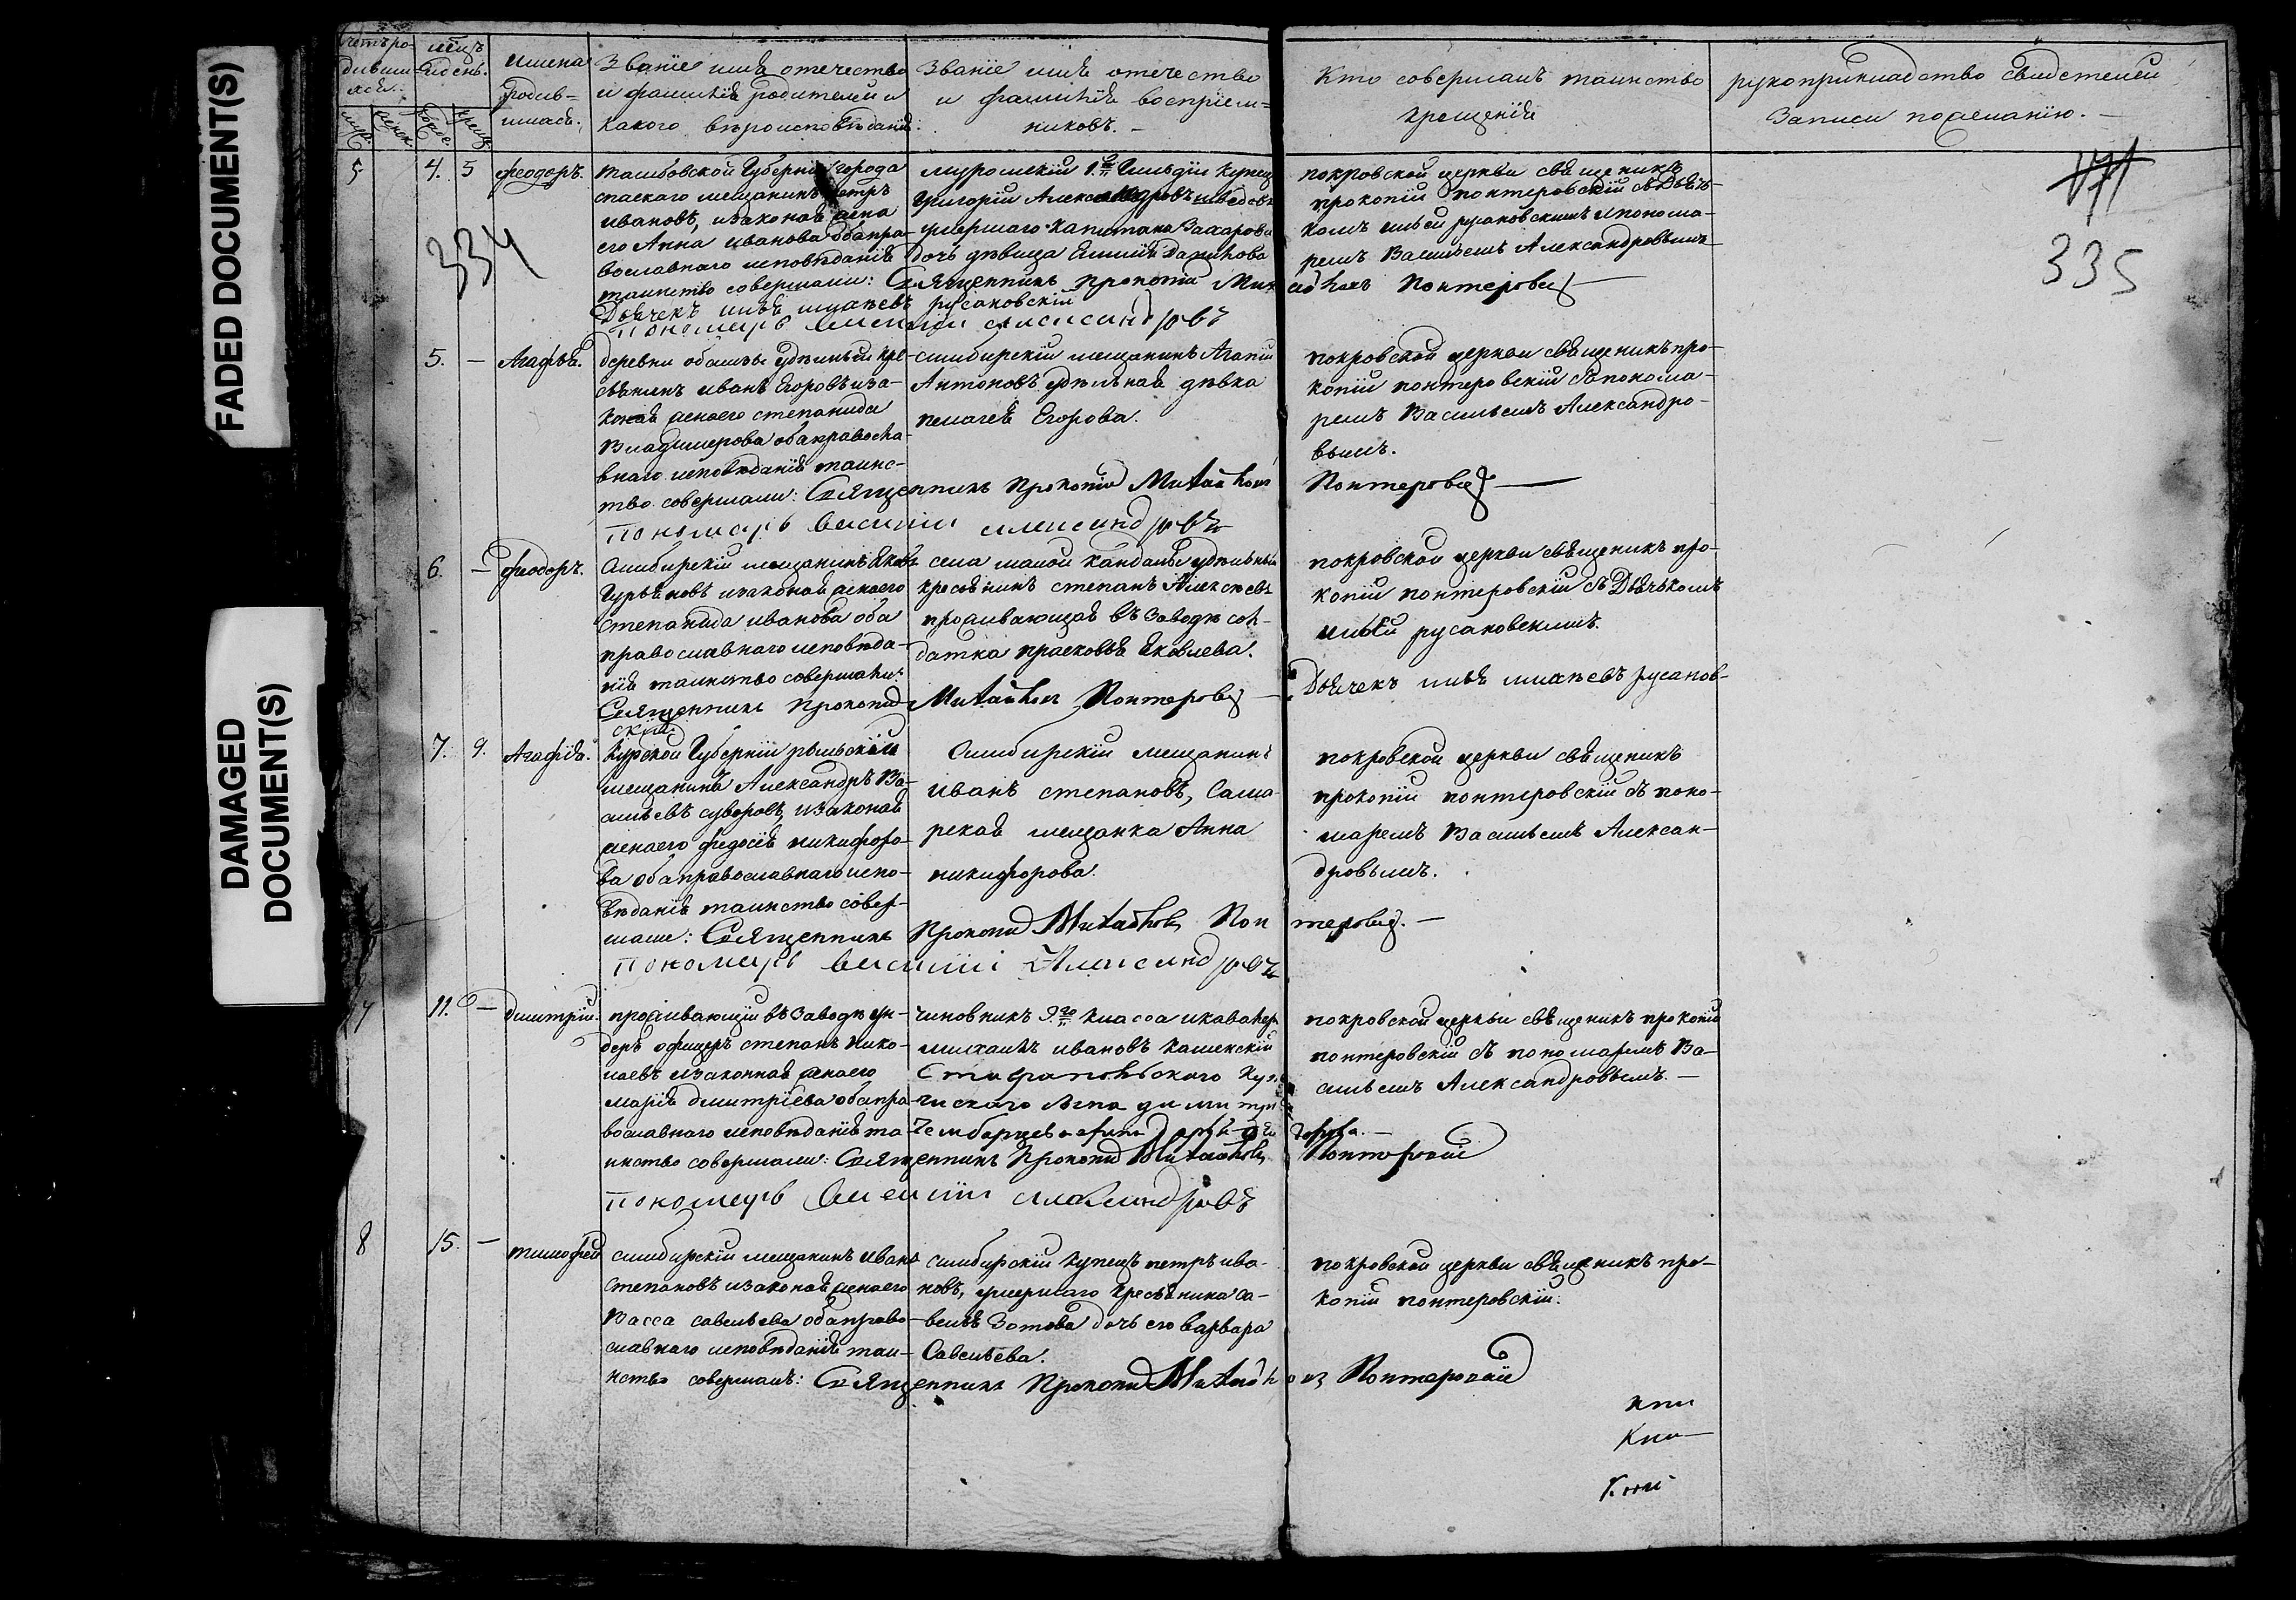 FADED DOCUMENT(S)
DAMAGED
DOCUMENT(S)
имена
родив-
шихся.
Званіе имя отечество
и фамилія родителей и
какого вѣроисповѣданія.
Званіе имя отечество
и фамилія воспріем-
никовъ. –
Кто совершалъ таинство
крещенія
рукоприкладство свидетелей
записи по желанію. –
5
4. 5
феодоръ.
тамбовской Губерніи города
спаскаго мещанинъ петръ
ивановъ, изаконая жена
его Анна иванова обапра-
вославнаго исповѣданія
таинство совершали: Священникъ Прокопій
Дьячекъ илья михѣевъ русановскій
пономарь василій александровъ
муромскій 1й Гильдіи купецъ
Григорій Александровъ шведовъ
умершаго капитана Захарова
дочь дѣвица
покровской церкви священикъ
прокопій понтеровскій сДьяч-
комъ ильей русановскимъ ипонома-
ремъ Васильемъ Александровымъ
334
335
5. –
Агафья.
деревни удѣльный кре-
стьянинъ иванъ Егоровъ иза-
коная женаего степанида
Владимерова обаправосла-
внаго исповѣданія таинс-
тво совершали: Священникъ Прокопій Михайловъ
пономарь василій александровъ
симбирскій мещанинъ Агапій
Антоновъ удѣльная дѣвка
пелагея Егорова.
покровской церкви священикъ про-
копій понтеровскій спонома-
ремъ Васильемъ Александро-
вымъ.
6. –
феодоръ.
Симбирскій мещанинъ Яковъ
Гурьяновъ изаконая женаего
степанида иванова оба
православнаго исповѣда-
нія таинство совершали:
Священникъ Прокопій
скій
села малой кандалы удѣльный
кресьянинъ степанъ Алексѣевъ
проживающая въ заводѣ сол-
датка прасковья Яковлева.
Михайловъ
покровской церкви священикъ про-
копій понтеровскій сДьячкомъ
ильей русановскимъ.
Дьячекъ илья михѣевъ русанов-
7. 9.
Агафія.
Курской Губерніи рыльскій
мещанинъ Александръ Ва-
сильевъ суворовъ, изаконая
женаего федосія никифоро-
ва оба православнаго испо-
вѣданія таинство совер-
шали: Священникъ Прокопій Михайловъ
пономарь василій Александровъ
Симбирскій мещанинъ
иванъ степановъ, Сама-
рская мещанка Анна
никифорова.
покровской церкви священикъ
прокопій понтеровскій съ поно-
маремъ Васильемъ Алексан-
дровымъ.
7
11. –
дмитрій.
проживающій въ заводѣ ун-
деръ офицеръ степанъ нико-
лаевъ изаконная женаего
марія дмитріева обапра-
вославнаго исповѣданія та-
инство совершали: Священникъ Прокопій Михайловъ
пономарь василій александровъ
чиновникъ 9го класса икавалеръ
михаилъ ивановъ каменскій
покровской церкви священикъ прокопій
понтеровскій съ пономаремъ Ва-
сильемъ Александровымъ. –
8
15. –
тимофей
симбирскій мещанинъ иванъ
степановъ изаконая женаего
Васса савельева обаправо-
славнаго исповѣданія таи-
нство совершалъ: Священникъ Прокопій
симбирскій купецъ петръ ива-
новъ, умершаго кресьянина са-
велья Зотова дочь его варвара
Савельева.
покровской церкви священикъ про-
копій понтеровскій.